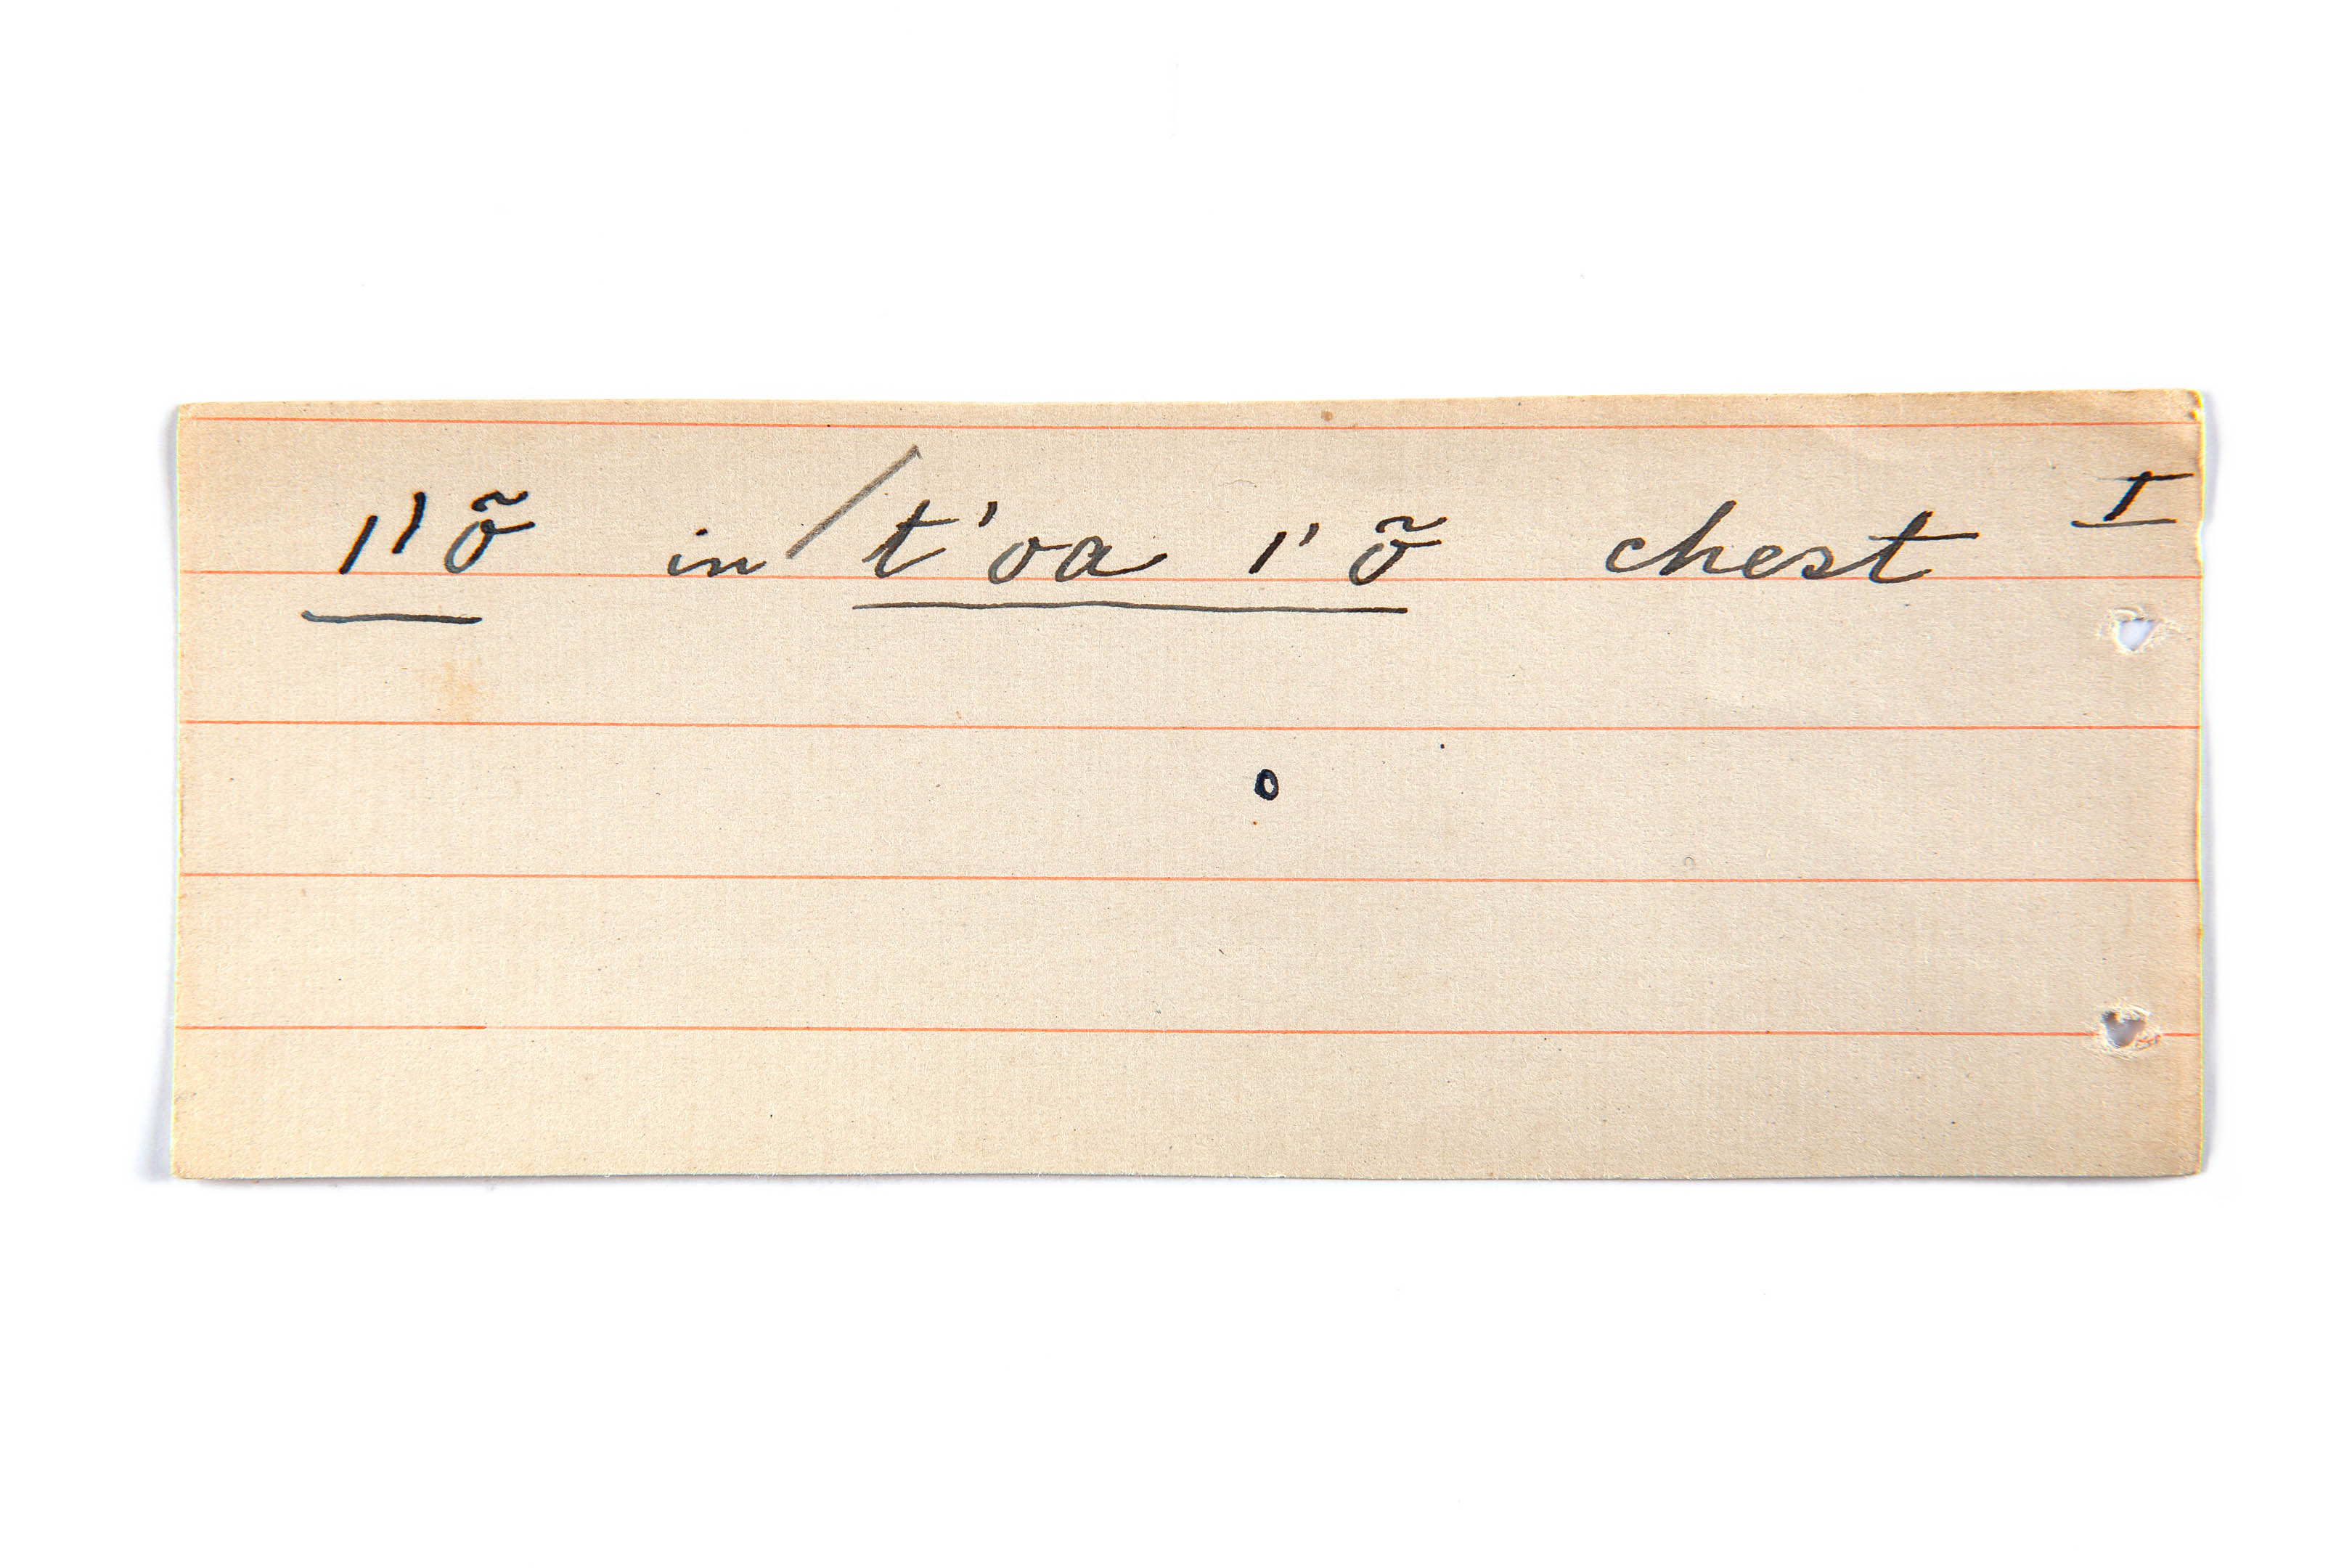 |'õ in /t'oa |'õ chest I
o